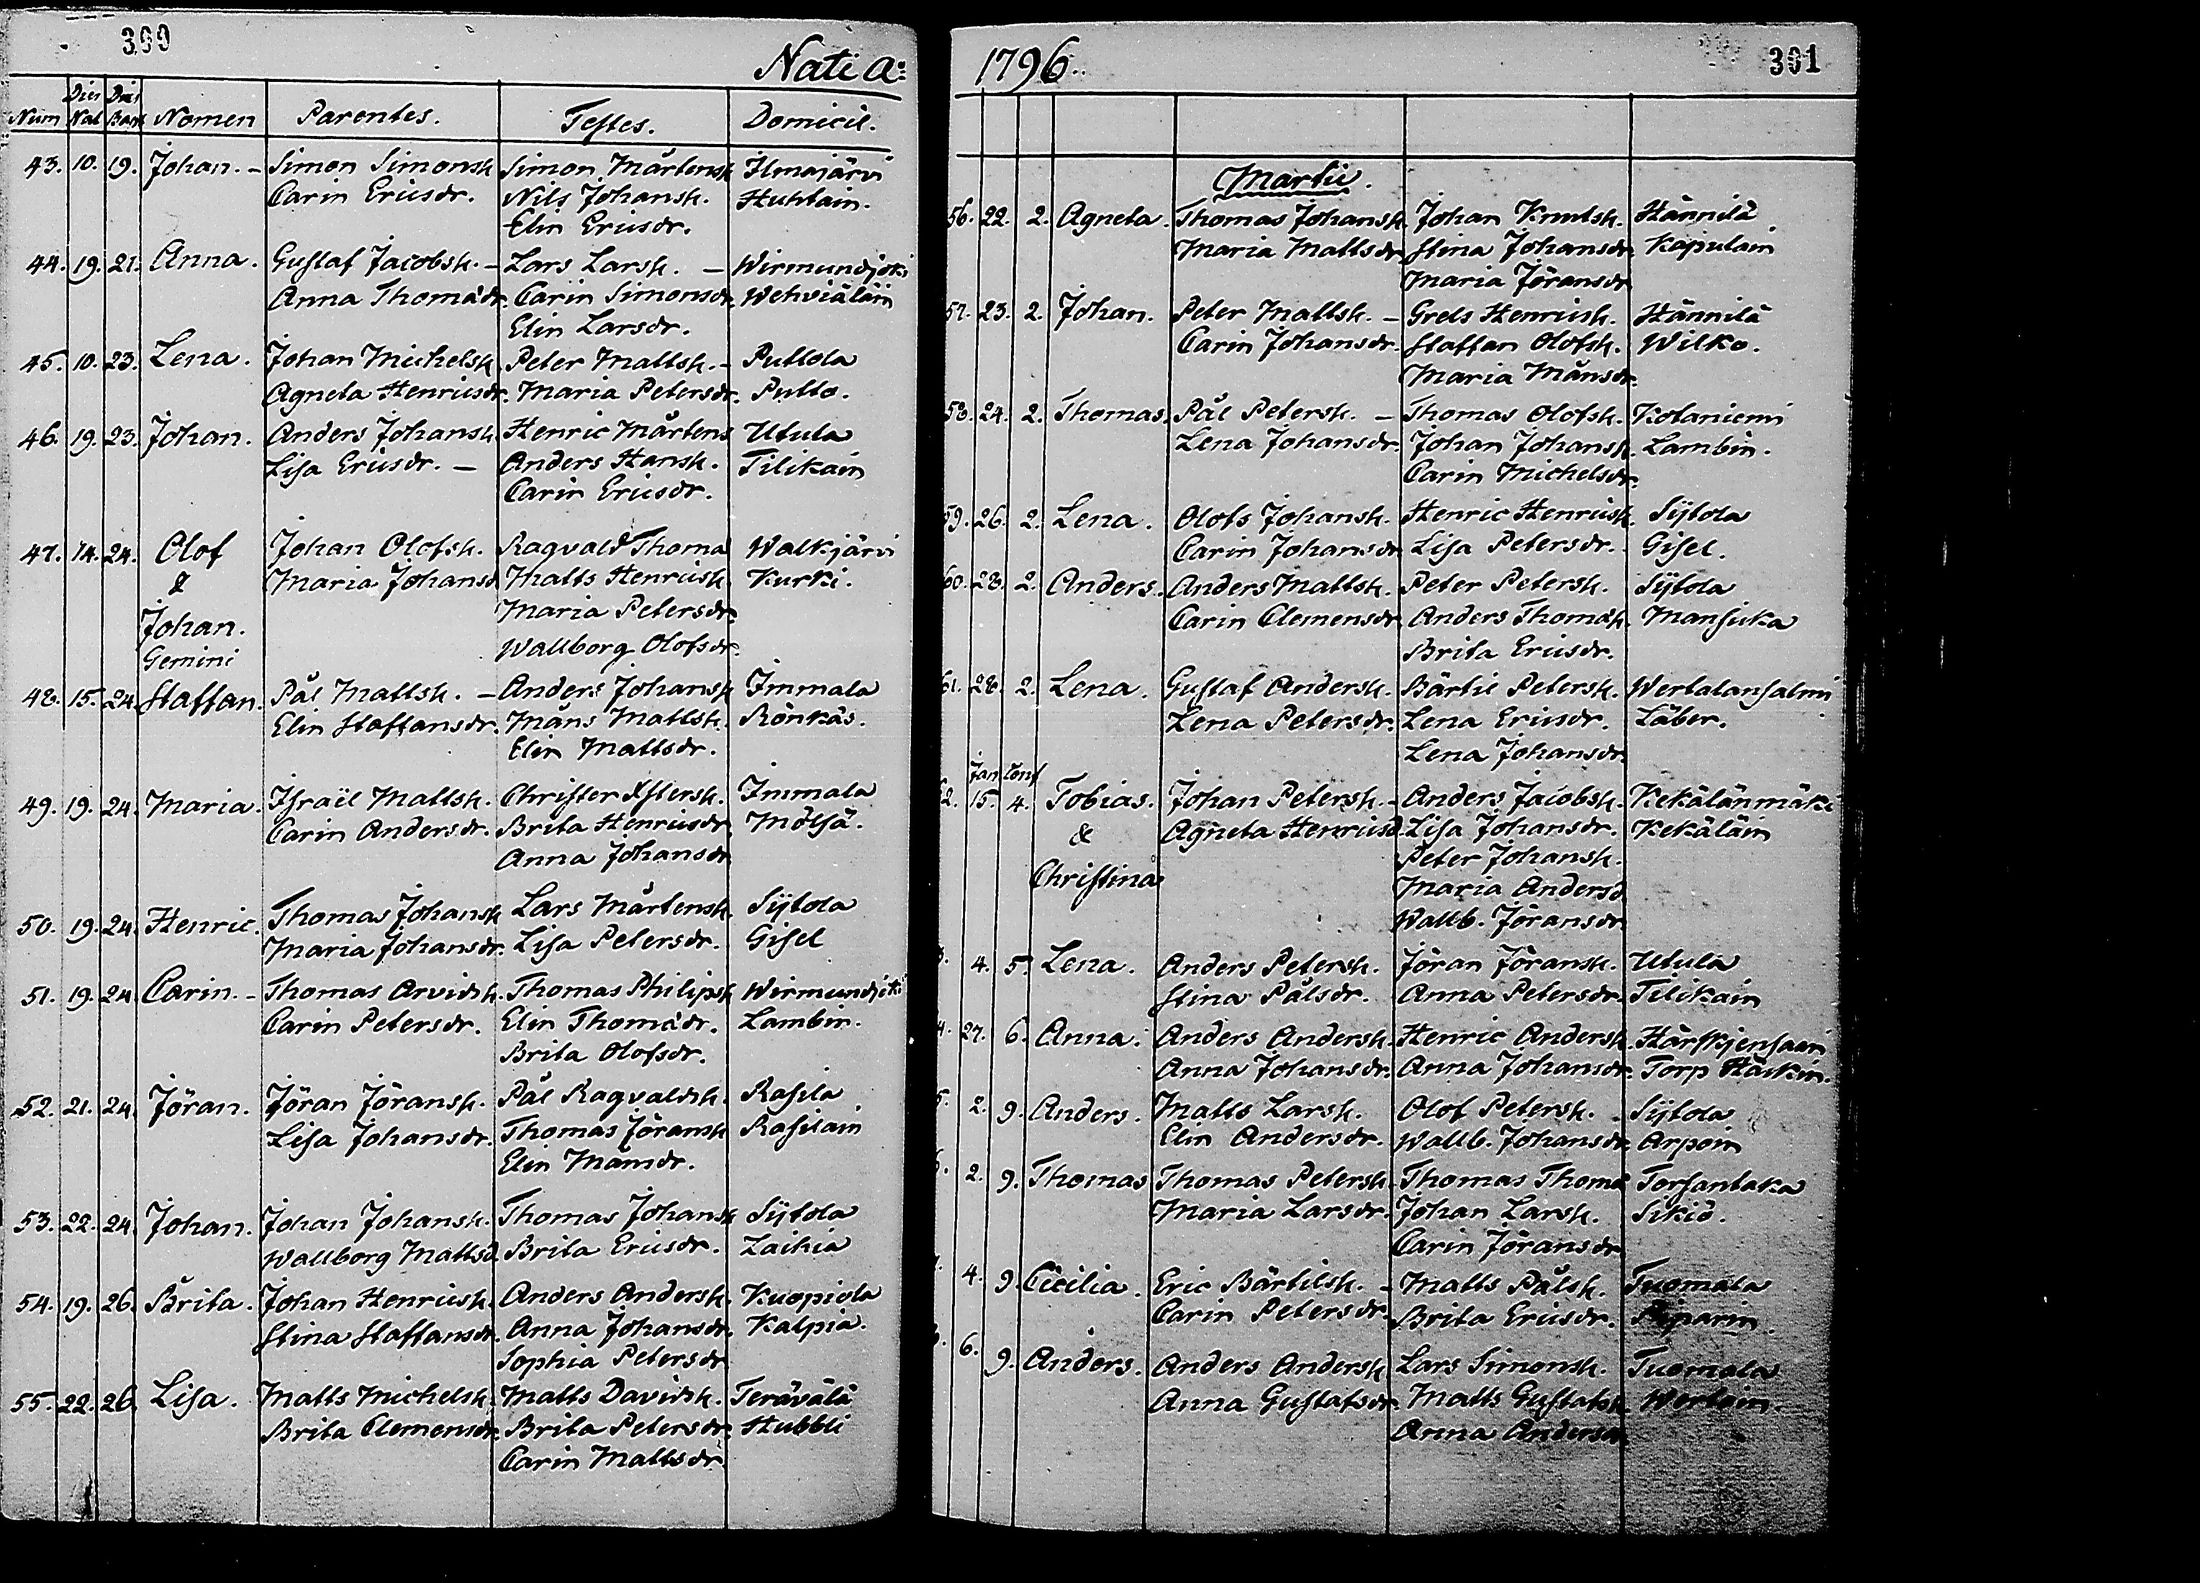 300
Nati a:
Num Dies Nat Dies Bapt Nomen Parentes. Testes. Domicil.
43. 10. 19. Johan. - Simon Simonsk Simon Mårtensk Ilmajärvi
Carin Ericsdr. Nils Johansk. Huhtain.
Elin Ericsdr.
44. 19. 21. Anna. Gustaf Jacobsk. - Lars Larsk. - Wirmundjoki
Anna Thomädr. Carin Simonsdr. Wehviäläin
Elin Larsdr.
45. 10. 23. Lena. Johan Michelsk. Peter Mattsk. - Puttola
Agneta Henricsdr. Maria Petersdr. Putto.
46. 19. 23. Johan. Anders Johansk. Henric Mårtens Utula
Lisa Ericsdr. - Anders Hansk. Tilikain
Carin Ericsdr.
47. 14. 24. Olof Johan Olofsk. Ragvald Thoma Walkjärvi
& Maria Johansd. Matts Henricsk Kurki.
Johan. Maria Petersdr.
Gemini Wallborg Olofsdr.
48. 15. 24. Staffan. Pål Mattsk. - Anders Johansk Immala
Elin Staffansdr. Måns Mattsk. Rönkäs.
Elin Mattsdr.
49. 19. 24. Maria. Israël Mattsk. Christer Xstersk. Immala
Carin Andersdr. Brita Henricsdr. Mötsä.
Anna Johansdr
50. 19. 24. Henric. Thomas Johansk Lars Mårtensk. Sÿtola
Maria Johansdr. Lisa Petersdr. Gisel
51. 19. 24. Carin. - Thomas Arvidsk. Thomas Philipsk Wirmundjoki
Carin Petersdr. Elin Thomädr. Lambin.
Brita Olofsdr.
52. 21. 24. Jöran. Jöran Jöransk. Pål Ragvaldsk. Rasila
Lisa Johansdr. Thomas Jöransk Rasilain
Elin Månsdr.
53. 22. 24. Johan. Johan Johansk. Thomas Johansk Sÿtola
Wallborg Mattsd. Brita Ericsdr. Laihia
54. 19. 26. Brita. Johan Henricsk. Anders Andersk. Kuopiola
Stina Staffansdr. Anna Johansdr. Kalpia.
Sophia Petersdr
55. 22. 26. Lisa. Matts Michelsk. Matts Davidsk. Terävälä
Brita Clemensdr. Brita Petersdr. Hubbli
Carin Mattsdr.
1796.
301
Martii.
56. 22. 2. Agneta. Thomas Johansk. Johan Knutsk. Hännilä
Maria Mattsdr. Stina Johansdr. Kapulain
Maria Jöransdr
57. 23. 2. Johan. Peter Mattsk. - Grels Henricsk. Hännilä
Carin Johansdr. Staffan Olofsk. Wilko.
Maria Månsdr.
58. 24. 2. Thomas. Pål Petersk. - Thomas Olofsk. Kotaniemi
Lena Johansdr. Johan Johansk. Lambin.
Carin Michelsdr.
59. 26. 2. Lena. Olofs Johansk. Henric Henricsk. Sÿtola
Carin Johansdr Lisa Petersdr. Gisel.
60. 28. 2. Anders. Anders Mattsk. Peter Petersk. Sÿtola
Carin Clemensdr Anders Thomäk. Mansicka
Brita Ericsdr.
61. 28. 2. Lena. Gustaf Andersk. Bärtil Petersk. Wertalansalmi
Lena Petersdr. Lena Ericsdr. Läber.
Lena Johansdr.
Jan
2. 15. 4. Tobias. Johan Petersk. - Anders Jacobsk. Kekälänmäki
& Agneta Henricsd. Lisa Johansdr. Kekäläin
Christina Peter Johansk.
Maria Andersd
Wallb. Jöransdr.
4. 5. Lena. Anders Petersk. Jöran Jöransk. Utula
Stina Pålsdr. Anna Petersdr. Tilikain
27. 6. Anna. Anders Andersk. Henric Andersk.
Anna Johansdr. Anna Johansdr. Torp
2. 9. Anders. Matts Larsk. Olof Petersk. Sÿtola
Elin Andersdr. Wallb. Johansdr. Arpoin
2. 9. Thomas Thomas Petersk. Thomas Thomä Torsantaka
Maria Larsdr. Johan Larsk. Sikiö.
Carin Jöransdr
4. 9. Cicilia. Eric Bärtilsk. - Matts Pålsk. Tuomala
Carin Petersdr. Brita Ericsdr. Piparin.
6. 9. Anders. Anders Andersk Lars Simonsk. Tuomala
Anna Gustafsdr. Matts Gustafsk
Anna Andersdr